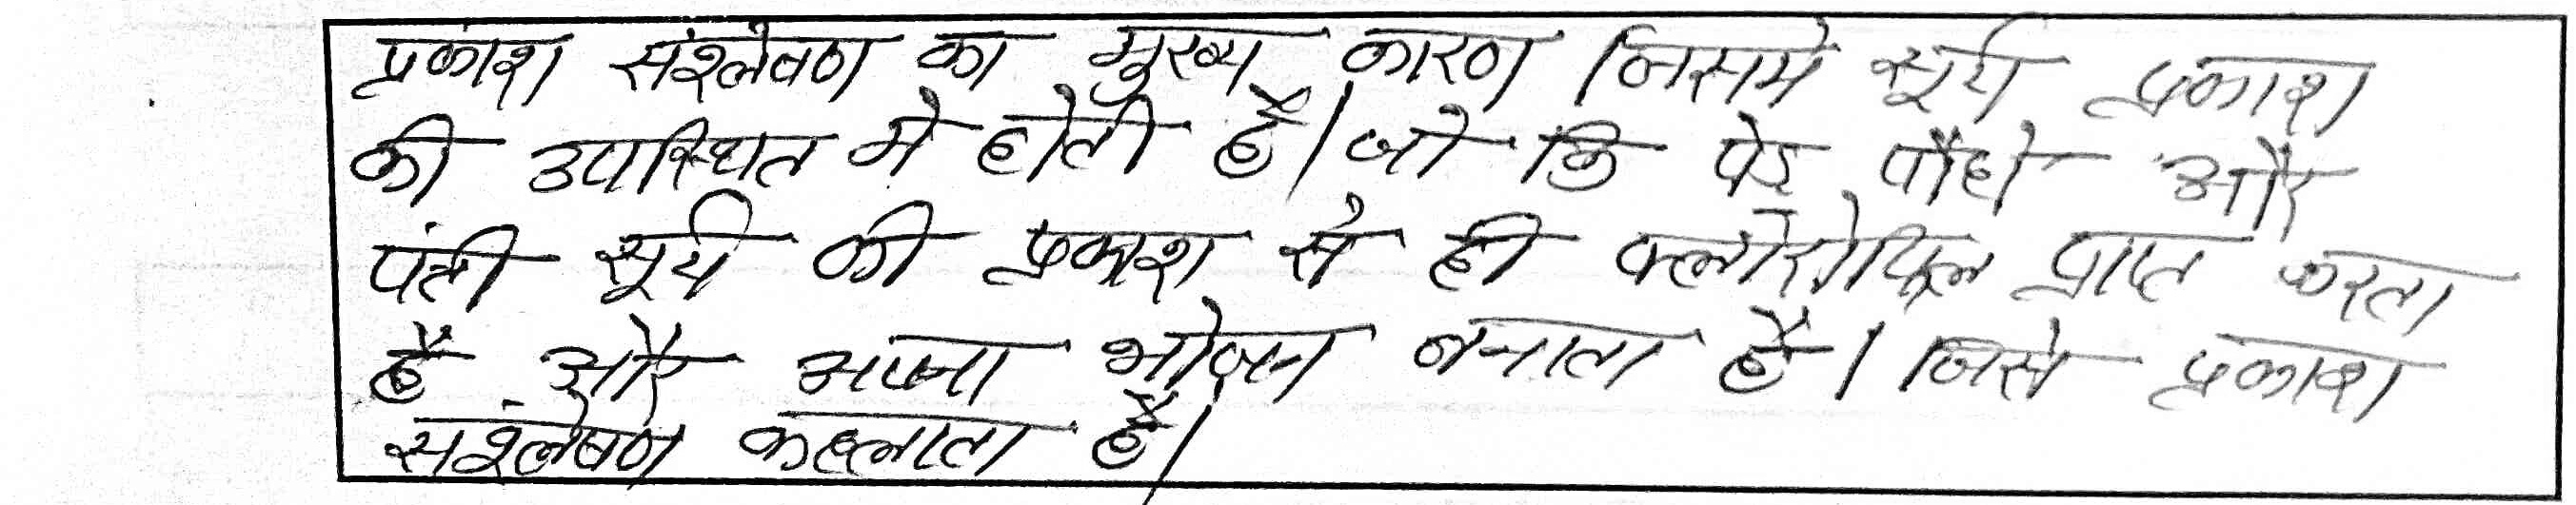 प्रकाश संश्लेषण का मुख्य कारण जिसमे सूर्य प्रकाश
की उपस्थित मे होती है। जो कि पेड़ पौधे और
पंती सूर्य की प्रकाश से ही क्लोरोफिल प्राप्त करता
है और अपना भोजन बनाता है। जिसे प्रकाश
संश्लेषण कहलाता है।